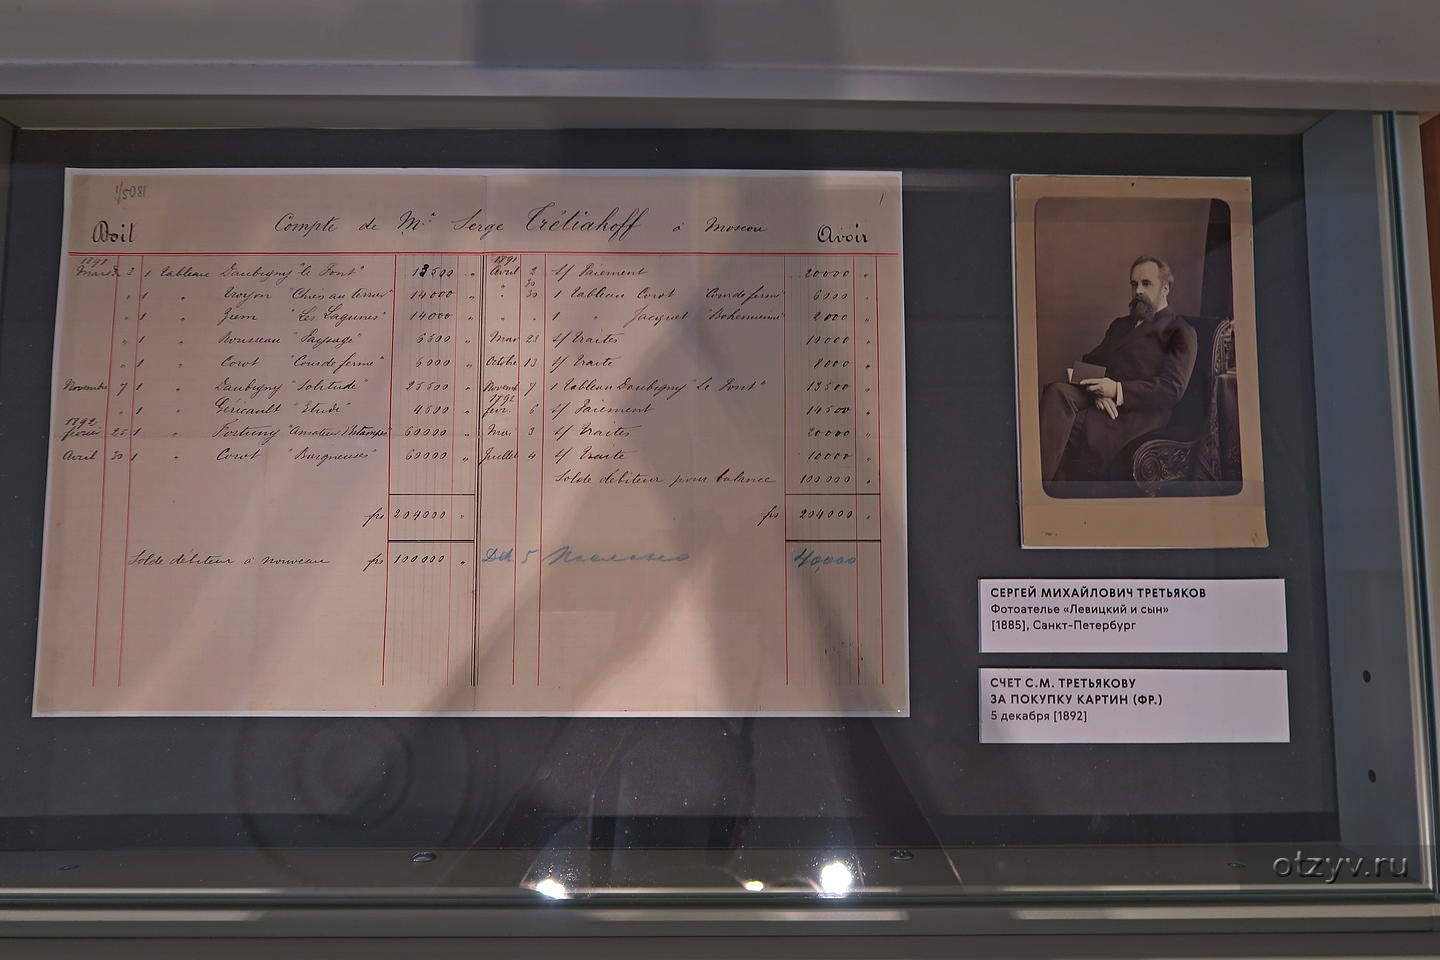 1/5081
Doit Compte de Mr Serge Trétiakoff à Moscou Avoir
1891 1891
Mars 3 1 tableau Daubigny "le Pont" 13500 " Avril 2 s/ Paiement 20000 "
" 1 " Troyon "Chiens au terrier" 14000 " " 30 1 tableau Corot "Cour de ferme" 6000 "
" 1 " Ziem "Les Lagunes" 14000 " " " 1 " Jacquet "Bohemienne" 2000 "
" 1 " Rousseau "Paysage" 6500 " Mai 23 s/ traites 10000 "
" 1 " Corot "Cour de ferme" 6000 " Octobre 13 s/ traite 8000 "
Novembre 7 1 " Daubigny "Solitude" 25500 " Novemb 7 1 tableau Daubigny "Le Pont" 13500 "
" 1 " Géricault "Etude" 4500 " 1892 févr. 6 s/ Paiement 14500 "
1892 février 25 1 " Fortuny "Amateur d'Estampes" 60000 " Mai 3 s/ traites 20000 "
Avril 30 1 " Corot 60000 " Juillet 4 s/ traite 10000 "
Solde débiteur pour balance 100000 "
frs 204000 " frs 204000 "
Solde débiteur à nouveau frs 100000 " Dec. 5 Послано 40,000
СЕРГЕЙ МИХАЙЛОВИЧ ТРЕТЬЯКОВ
Фотоателье «Левицкий и сын»
[1885], Санкт-Петербург
СЧЕТ С.М. ТРЕТЬЯКОВУ
ЗА ПОКУПКУ КАРТИН (ФР.)
5 декабря [1892]
otzyv.ru